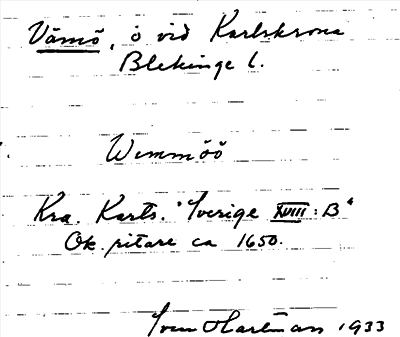 Vämö, ö vid Karlskrona
Blekinge l.
Wemmöö
Kra. Karts. "Sverige XVIII: B"
Ok. ritare ca 1650.
Sven Hartman 1933